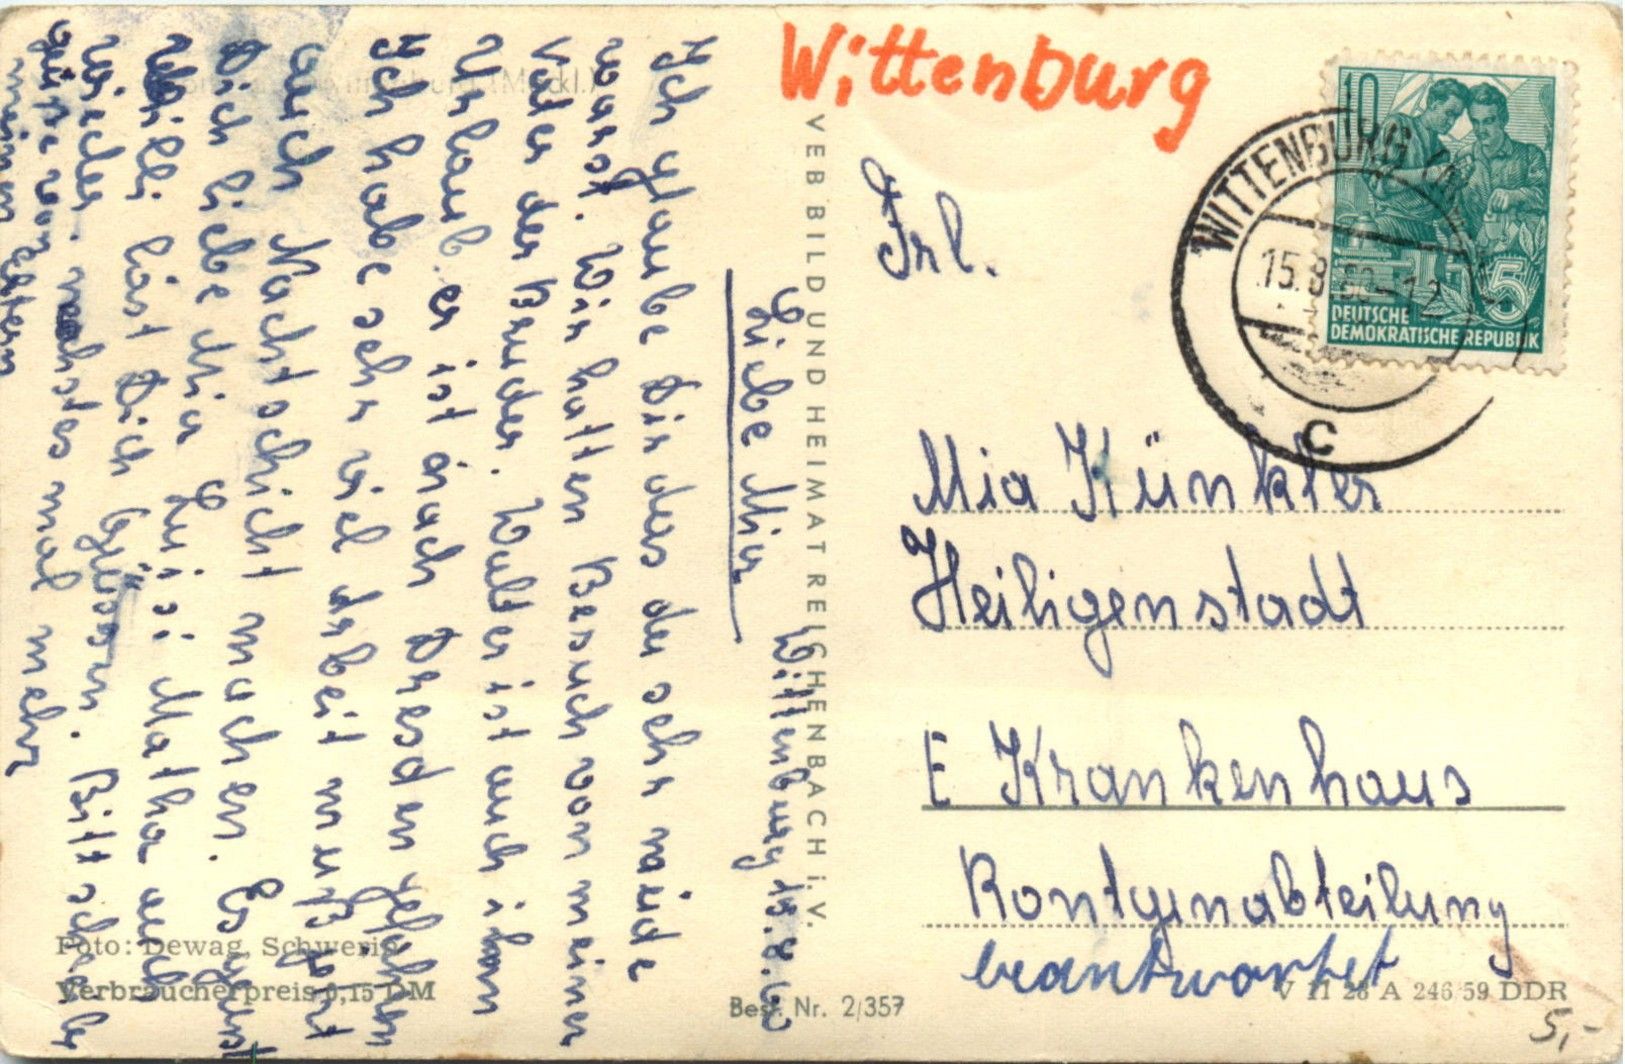 Wittenburg
10
WITTENBURG
15.8.60-12
C
5
DEUTSCHE
DEMOKRATISCHE REPUBLIK
Frl.
Mia Künkler
Heiligenstadt
E Krankenhaus
Rontgenabteilung
beantwortet
V 11 28 A 246 59 DDR
5,-
VEB BILD UND HEIMAT REICHENBACH i. V.
Best. Nr. 2/357
Foto: Dewag, Schwerin
Verbraucherpreis 0,15 DM
Wittenburg 15.8.60
Liebe Mia
Ich glaube Dir das du sehr
warst. Wir hatten Besuch von meiner
Vater der Bruder. Walter ist auch ihm
Urlaub. er ist nach Dresden gefahren
Ich habe sehr viel arbeit muß jetzt
auch Nachtschicht machen. Es grüst
Dich liebe Mia Luisi Matha auch
Willi läst Dich Grüssen. Bitt schreibe
wieder. nechstes mal mehr
grüse von
meinen Eltern